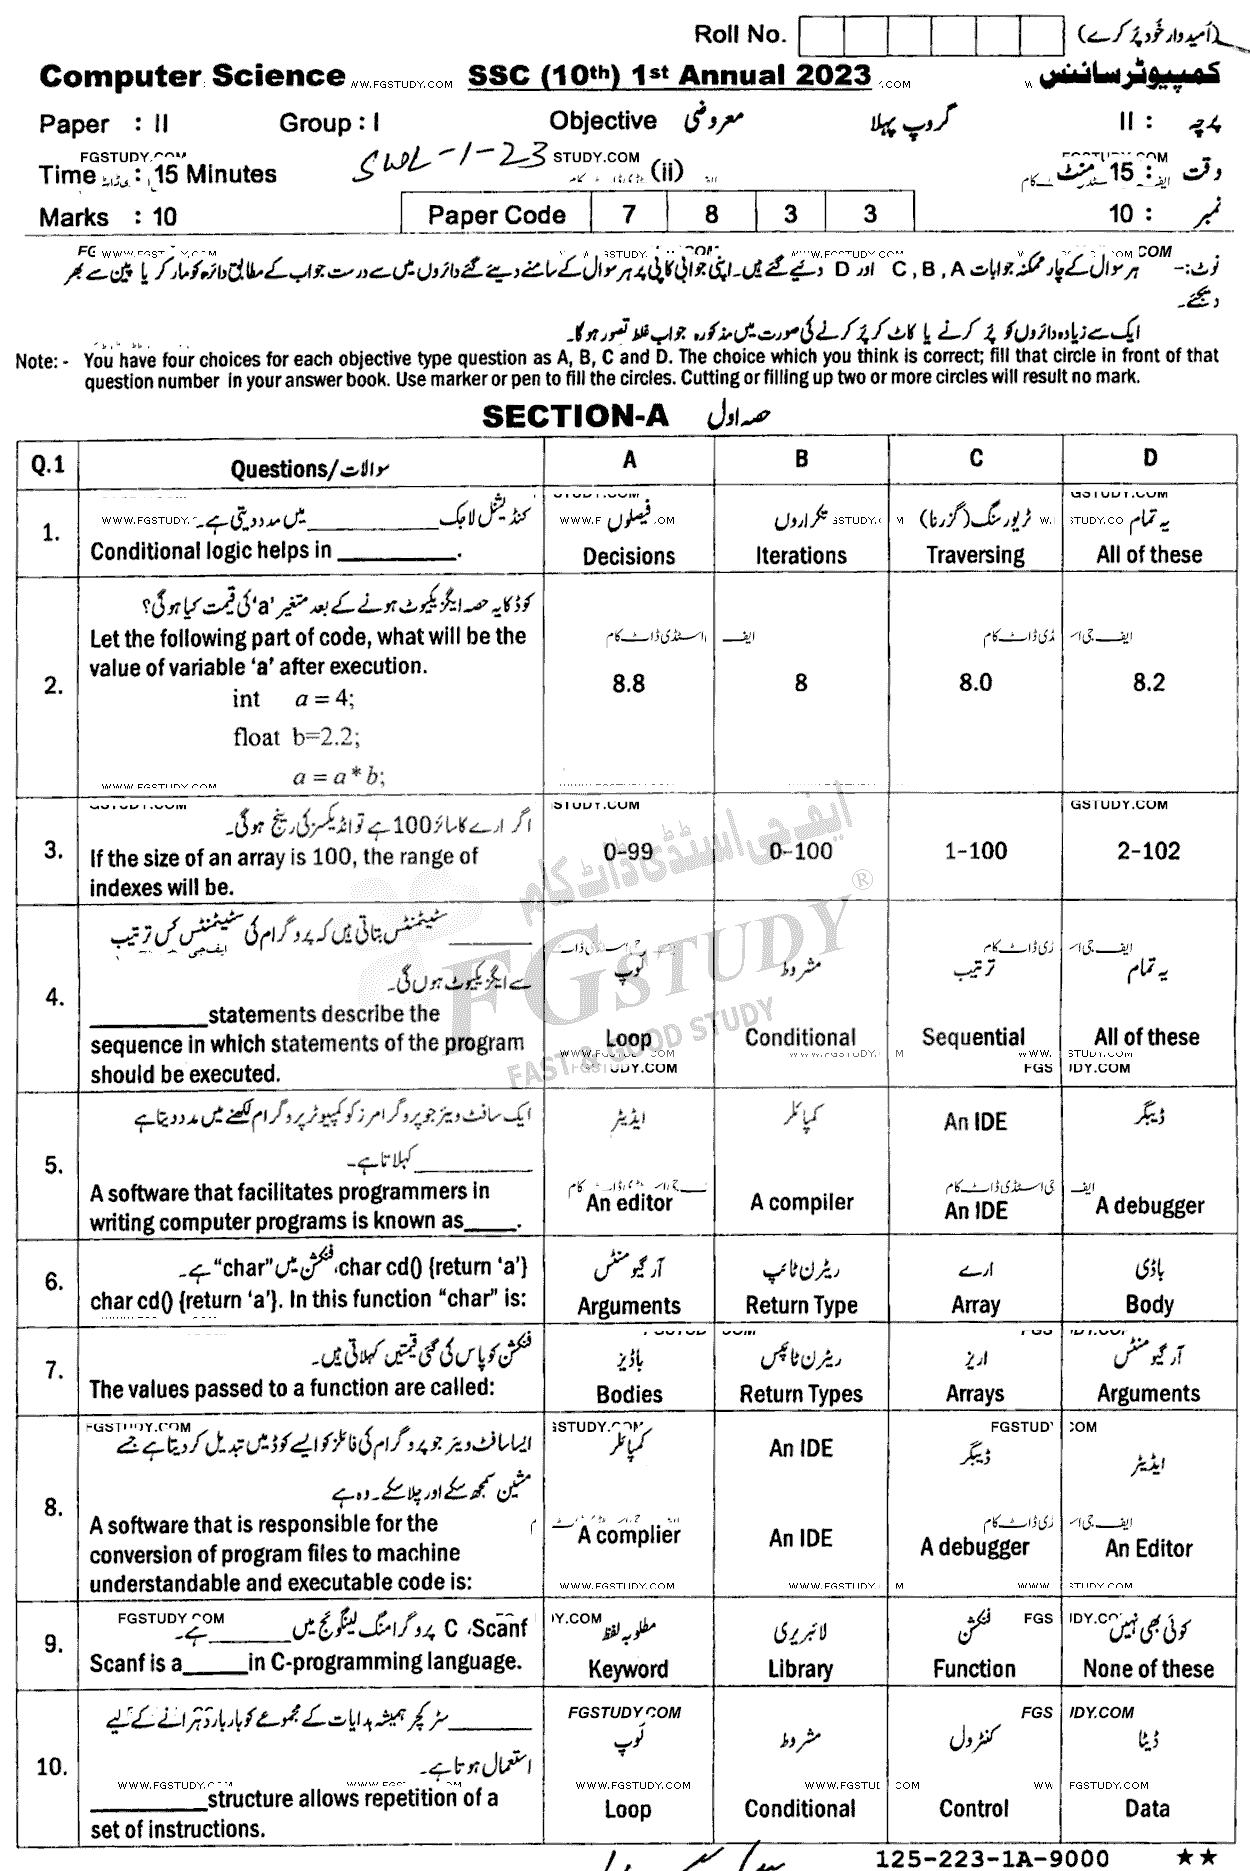 Roll No. (اُمیدوار خُود پُر کرے)
Computer Science WW.FGSTUDY.COM SSC (10th) 1st Annual 2023 کمپیوٹر سائنس
Paper : II Group : I Objective معروضی گروپ پہلا پرچہ : II
FGSTUDY.COM STUDY.COM
Time : 15 Minutes SWL-1-23 (ii) وقت : 15 منٹ
Marks : 10 Paper Code 7 8 3 3 نمبر : 10
نوٹ:- ہر سوال کے چار ممکنہ جوابات A ,B ,C اور D دئیے گئے ہیں۔ اپنی جوابی کاپی پر ہر سوال کے سامنے دیئے گئے دائروں میں سے درست جواب کے مطابق دائرہ کو مارکر یا پین سے بھر
دیجئے۔
ایک سے زیادہ دائروں کو پُر کرنے یا کاٹ کر پُر کرنے کی صورت میں مذکورہ جواب غلط تصور ہوگا۔
Note: - You have four choices for each objective type question as A, B, C and D. The choice which you think is correct; fill that circle in front of that
question number in your answer book. Use marker or pen to fill the circles. Cutting or filling up two or more circles will result no mark.
SECTION-A حصہ اول
Q.1 Questions/سوالات A B C D
1. کنڈیشنل لاجک __________ میں مدد دیتی ہے۔ فیصلوں تکراروں ٹریورسنگ (گزرنا) یہ تمام
Conditional logic helps in __________. Decisions Iterations Traversing All of these
کوڈ کا یہ حصہ ایگزیکیوٹ ہونے کے بعد متغیر 'a' کی قیمت کیا ہوگی؟
Let the following part of code, what will be the
value of variable 'a' after execution.
2. 8.8 8 8.0 8.2
int a = 4;
float b=2.2;
a = a * b;
اگر ارے کا سائز 100 ہے تو انڈیکسز کی رینج ہوگی۔
3. If the size of an array is 100, the range of 0-99 0-100 1-100 2-102
indexes will be.
__________ سٹیٹمنٹس بتاتی ہیں کہ پروگرام کی سٹیٹمنٹس کس ترتیب لُوپ مشروط ترتیب یہ تمام
سے ایگزیکیوٹ ہوں گی۔
4. __________statements describe the
sequence in which statements of the program Loop Conditional Sequential All of these
should be executed.
ایک سافٹ ویئر جو پروگرامرز کو کمپیوٹر پروگرام لکھنے میں مدد دیتا ہے ایڈیٹر کمپائلر An IDE ڈیبگر
__________ کہلاتا ہے۔
5. A software that facilitates programmers in
writing computer programs is known as_____. An editor A compiler An IDE A debugger
char cd() {return 'a'}، فنکشن میں "char" ہے۔ آرگیومنٹس ریٹرن ٹائپ ارے باڈی
6. char cd() {return 'a'}. In this function "char" is: Arguments Return Type Array Body
فنکشن کو پاس کی گئی قیمتیں کہلاتی ہیں۔ باڈیز ریٹرن ٹائپس اریز آرگیومنٹس
7. The values passed to a function are called: Bodies Return Types Arrays Arguments
ایسا سافٹ ویئر جو پروگرام کی فائلز کو ایسے کوڈ میں تبدیل کر دیتا ہے جسے کمپائلر An IDE ڈیبگر ایڈیٹر
مشین سمجھ سکے اور چلا سکے۔ وہ ہے
8. A software that is responsible for the
conversion of program files to machine A complier An IDE A debugger An Editor
understandable and executable code is:
Scanf، C پروگرامنگ لینگوئج میں ________ ہے۔ مطلوبہ لفظ لائبریری فنکشن کوئی بھی نہیں
9. Scanf is a______in C-programming language. Keyword Library Function None of these
__________ سٹرکچر ہمیشہ ہدایات کے مجموعے کو بار بار دُہرانے کے لیے لُوپ مشروط کنٹرول ڈیٹا
استعمال ہوتا ہے۔
10. __________structure allows repetition of a Loop Conditional Control Data
set of instructions.
ایف جی اسٹڈی ڈاٹ کام
FGSTUDY®
FAST & GOOD STUDY
125-223-1A-9000 ★★